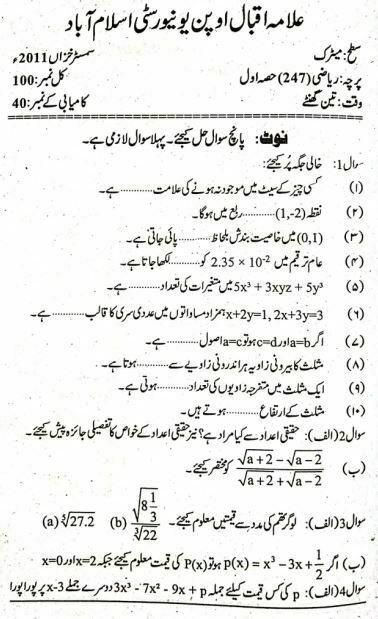 علامہ اقبال اوپن یونیورسٹی اسلام آباد
سطح: میٹرک سمسٹر خزاں 2011ء
پرچہ: ریاضی (247) حصہ اول کل نمبر: 100
وقت: تین گھنٹے کامیابی کے نمبر: 40
نوٹ: پانچ سوال حل کیجئے۔ پہلا سوال لازمی ہے۔
سوال 1: خالی جگہ پُر کیجئے:
(۱) کسی چیز کے سیٹ میں موجود نہ ہونے کی علامت ..........ہے۔
(۲) نقطہ (1,-2)..........ربع میں ہوگا۔
(۳) {0,1} میں خاصیت بندش بلحاظ..........پائی جاتی ہے۔
(۴) عام ترقیم میں 2.35 × 10⁻² کو..........لکھا جاتا ہے۔
(۵) 5x³ + 3xyz + 5y³ میں متغیرات کی تعداد..........ہے۔
(۶) x+2y=1, 2x+3y=3 ہمزاد مساواتوں میں عددی سری کا قالب..........ہے۔
(۷) اگر a=b اور c=d ہو تو a=c اصول..........ہے۔
(۸) مثلث کا بیرونی زاویہ ہر اندرونی زاویے سے..........ہوتا ہے۔
(۹) ایک مثلث میں منفرجہ زاویوں کی تعداد..........ہوتی ہے۔
(۱۰) مثلث کے ارتفاع..........ہوتے ہیں۔
سوال 2 (الف): حقیقی اعداد سے کیا مراد ہے؟ نیز حقیقی اعداد کے خواص کا تفصیلی جائزہ پیش کیجئے۔
(ب) (√(a+2) − √(a−2)) / (√(a+2) + √(a−2)) کو مختصر کیجئے۔
سوال 3 (الف): لوگرتھم کی مدد سے قیمتیں معلوم کیجئے۔ (a) ⁵√27.2 (b) √(8 1/3) / ³√22
(ب) اگر p(x) = x³ - 3x + 1/2 ہو تو P(x) کی قیمت معلوم کیجئے جبکہ x=2 اور x=0
سوال 4 (الف): p کی کس قیمت کیلئے جملہ 3x³ - 7x² - 9x + p دوسرے جملے x-3 پر پورا پورا